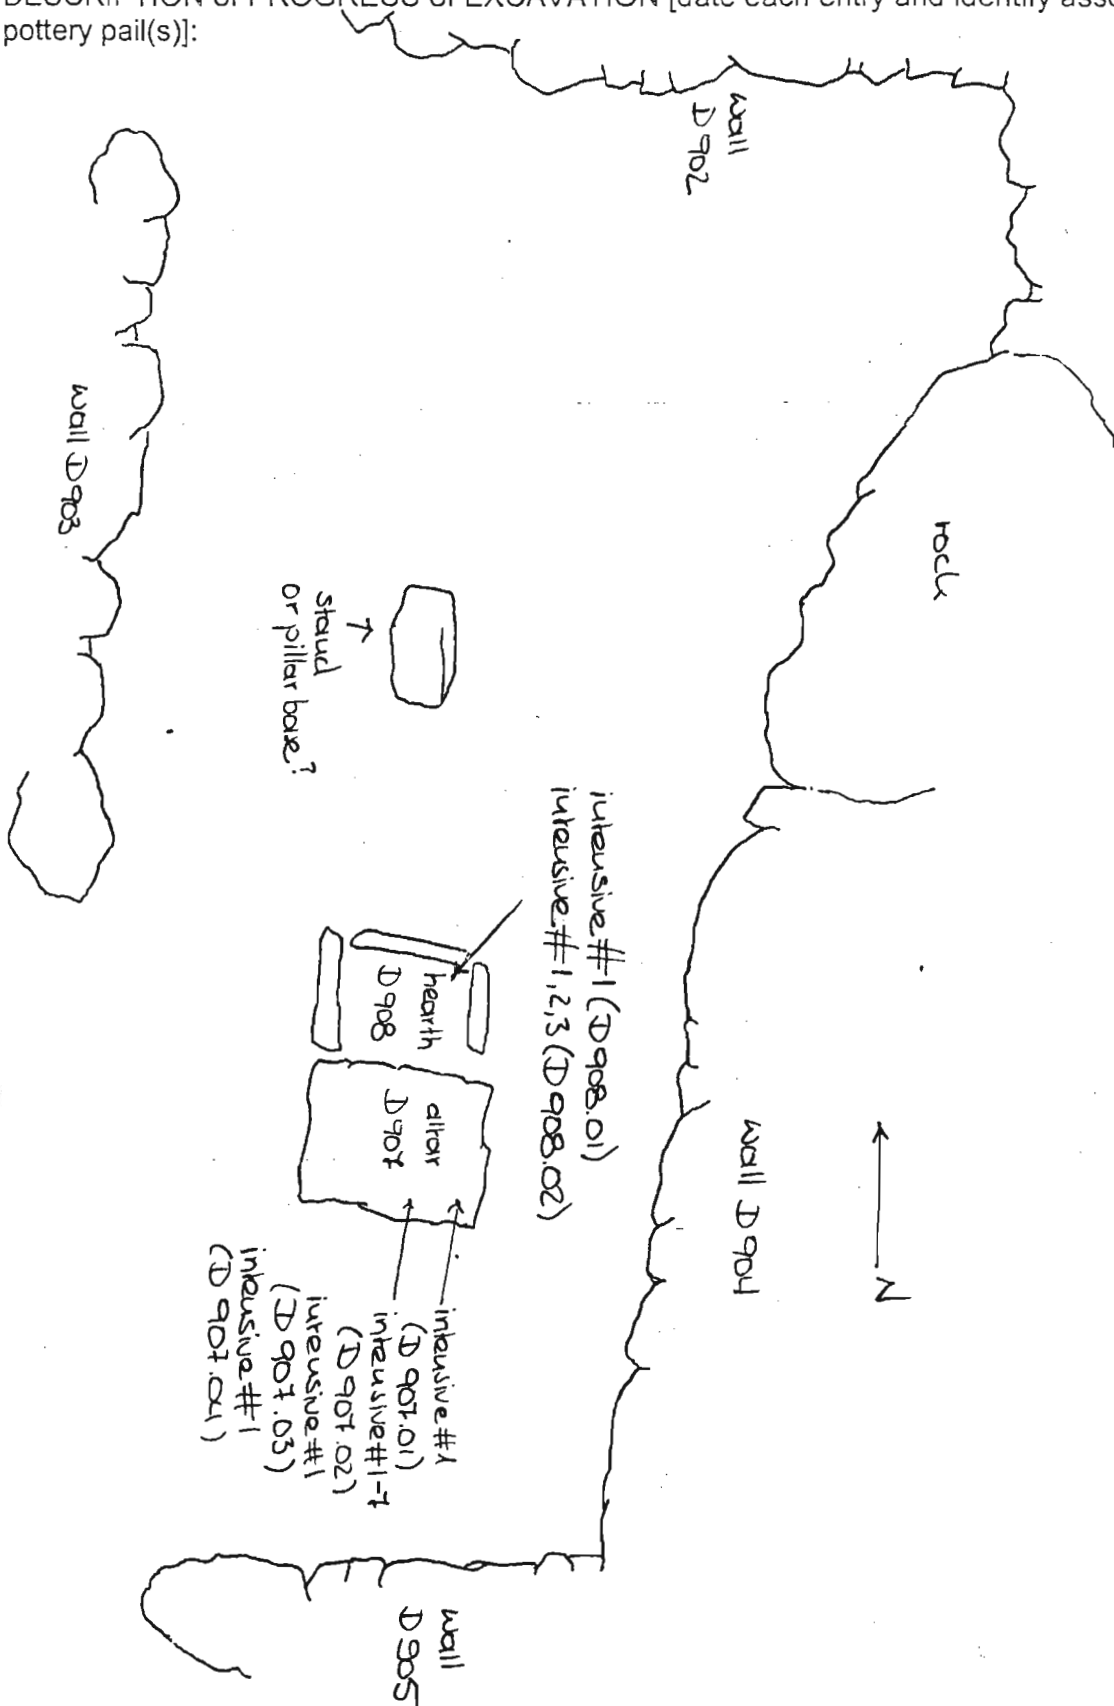 DESCRIPTION of PROGRESS of EXCAVATION [date each entry and identify asso
pottery pail(s)]:
wall
D902
wall D903
rock
stand
or pillar base?
intensive #1 (D908.01)
intensive #1,2,3 (D908.02)
hearth
D908
altar
D907
wall D904
N
intensive #1
(D907.01)
intensive #1-7
(D907.02)
intensive #1
(D907.03)
intensive #1
(D907.04)
wall
D905